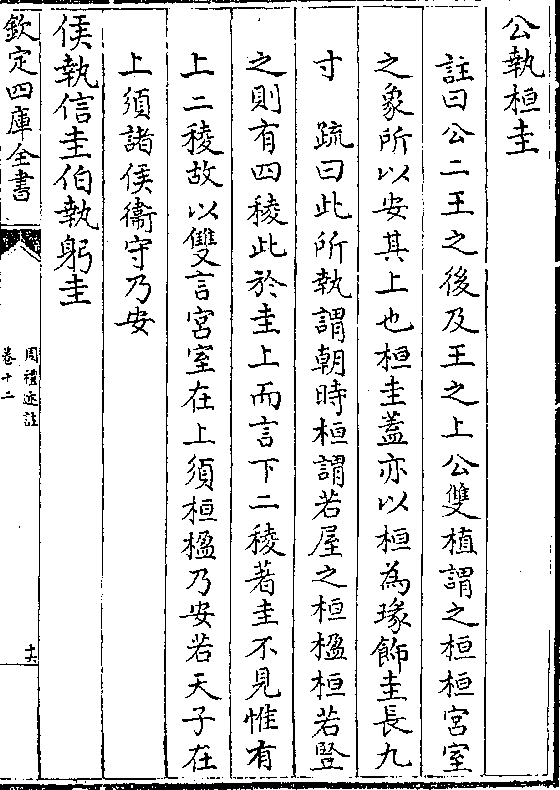 公執桓圭
註曰公二王之後及王之上公雙植謂之桓桓宮室
之象所以安其上也桓圭蓋亦以桓為瑑飾圭長九
寸　疏曰此所執謂朝時桓謂若屋之桓楹桓若豎
之則有四稜此於圭上而言下二稜著圭不見惟有
上二稜故以雙言宮室在上須桓楹乃安若天子在
上須諸侯衞守乃安
侯執信圭伯執躬圭
欽定四庫全書
周禮述註
卷十二
十六